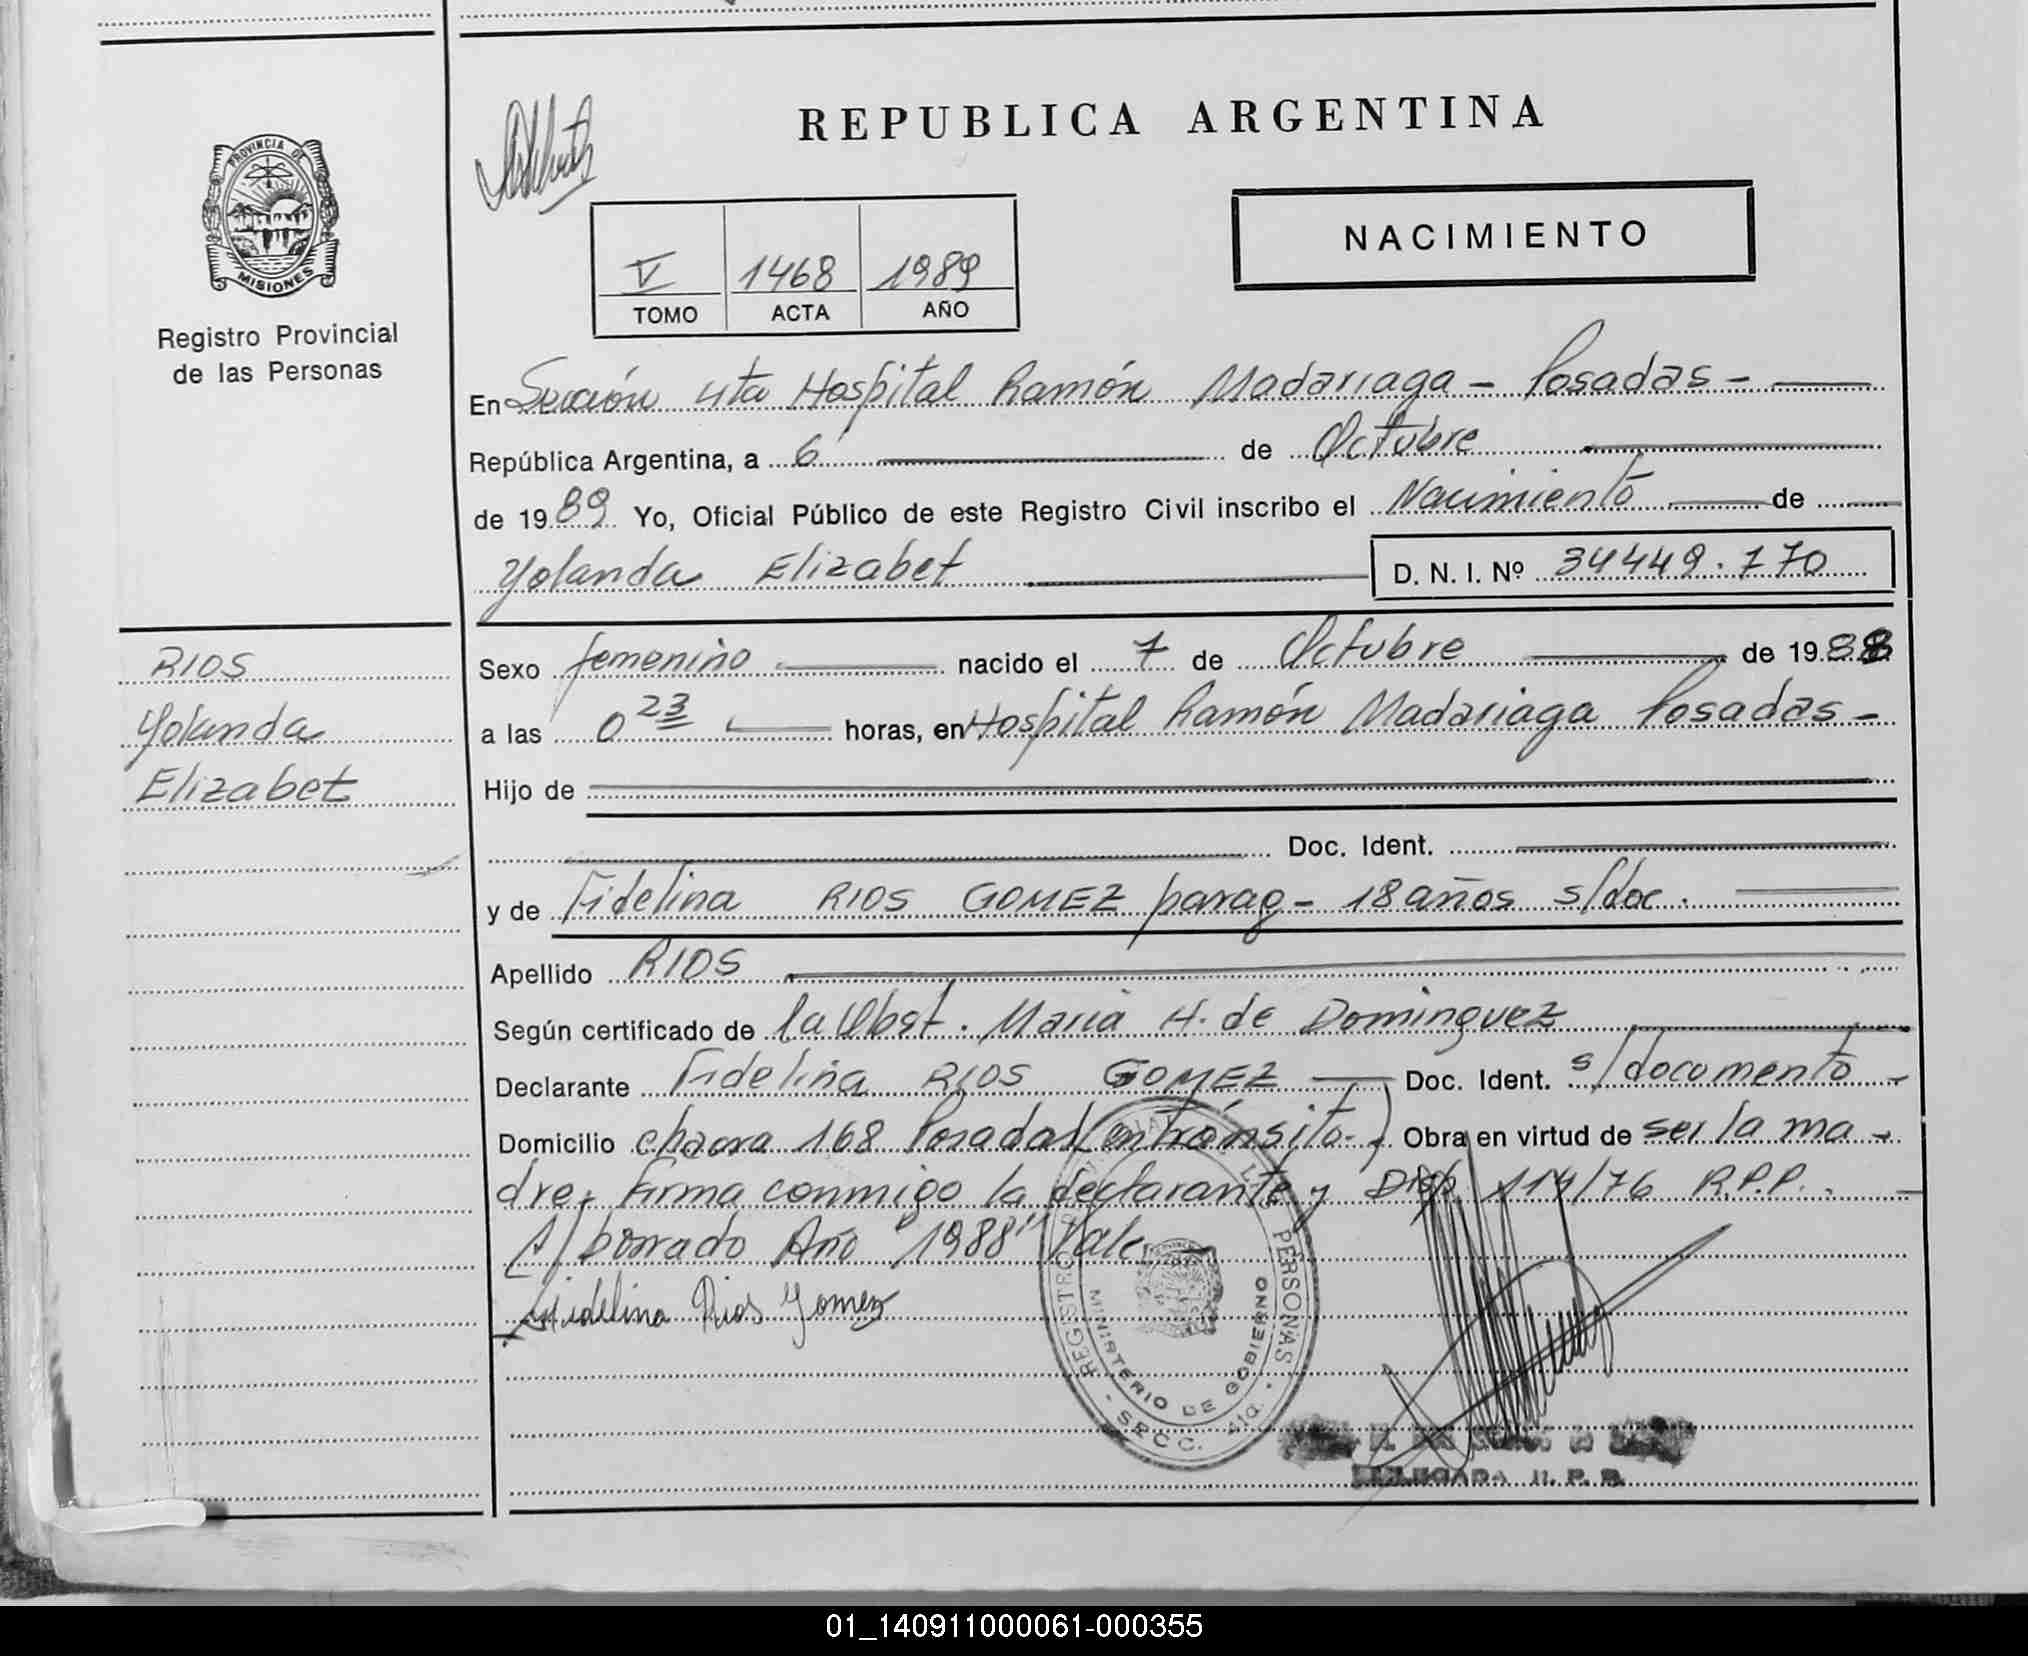 REPUBLICA ARGENTINA
PROVINCIA DE MISIONES
Registro Provincial
de las Personas
NACIMIENTO
V 1468 1989
TOMO ACTA AÑO
En Sección 4ta Hospital Ramón Madariaga - Posadas -
República Argentina, a 6 de Octubre
de 1989 Yo, Oficial Público de este Registro Civil inscribo el Nacimiento de
Yolanda Elizabet D. N. I. Nº 34449.770
RIOS
Yolanda
Elizabet
Sexo femenino nacido el 7 de Octubre de 1988
a las 0 23 horas, en Hospital Ramón Madariaga Posadas -
Hijo de
Doc. Ident.
y de Fidelina RIOS GOMEZ parag - 18 años s/doc.
Apellido RIOS
Según certificado de la Obst. Maria H. de Dominguez
Declarante Fidelina RIOS GOMEZ Doc. Ident. s/documento -
Domicilio chacra 168 Posadas (en tránsito-) Obra en virtud de ser la ma-
dre, Firma conmigo la declarante y Disp. 114/76 R.P.P. -
S/borrado Año "1988" Vale -
Fidelina Rios Gomez
REGISTRO PROVINCIAL DE LAS PERSONAS
MINISTERIO DE GOBIERNO
S R C C. 4ta.
DELEGADA R. P. P.
01_140911000061-000355